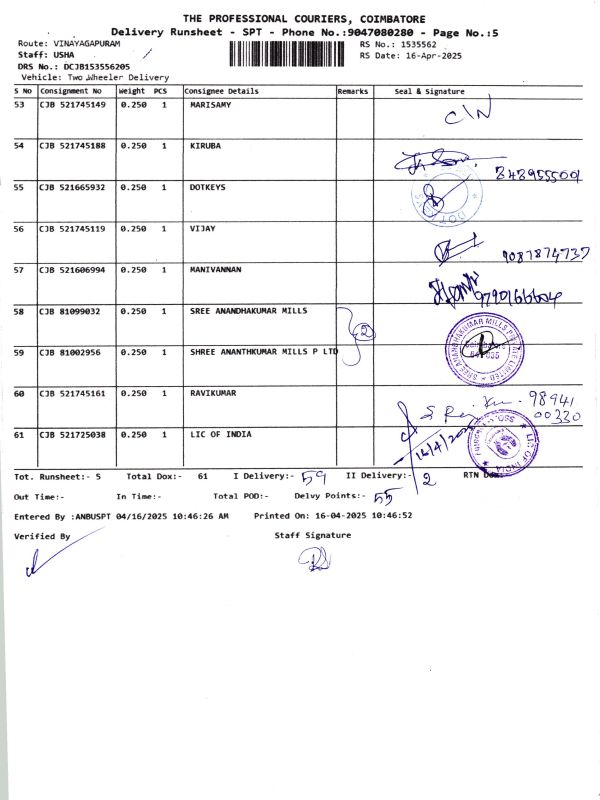 THE PROFESSIONAL COURIERS, COIMBATORE
Delivery Runsheet - SPT - Phone No.:9047080280 - Page No.:5
Route: VINAYAGAPURAM
RS No.: 1535562
Staff: USHA
RS Date: 16-Apr-2025
DRS No.: DCJB153556205
Vehicle: Two Wheeler Delivery
S No Consignment No Weight PCS Consignee Details Remarks Seal & Signature
53 CJB 521745149 0.250 1 MARISAMY C/N
54 CJB 521745188 0.250 1 KIRUBA
55 CJB 521665932 0.250 1 DOTKEYS
56 CJB 521745119 0.250 1 VIJAY 9087874737
57 CJB 521606994 0.250 1 MANIVANNAN 9790166604
58 CJB 81099032 0.250 1 SREE ANANDHAKUMAR MILLS 2
59 CJB 81002956 0.250 1 SHREE ANANTHKUMAR MILLS P LTD
60 CJB 521745161 0.250 1 RAVIKUMAR 98941
00330
61 CJB 521725038 0.250 1 LIC OF INDIA LIC OF INDIA
Tot. Runsheet:- 5 Total Dox:- 61 I Delivery:- 59 II Delivery:- 2 RTN Dox:-
Out Time:- In Time:- Total POD:- Delvy Points:- 55
Entered By :ANBUSPT 04/16/2025 10:46:26 AM Printed On: 16-04-2025 10:46:52
Verified By Staff Signature